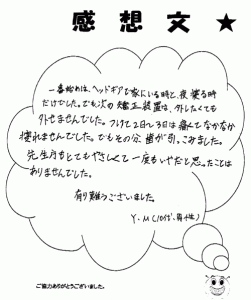 感想文★
一番始めは、ヘッドギアで家にいる時と、夜寝る時
だけでした。でも次の矯正装置は、外したくても
外せませんでした。つけて2日〜3日は痛くてなかなか
慣れませんでした。でもその分歯が引っこみました。
先生方もとてもやさしくて一度もいやだと思ったことは
ありませんでした。
有難うございました。
Y.M(10代・男性)
ご協力ありがとうございました。